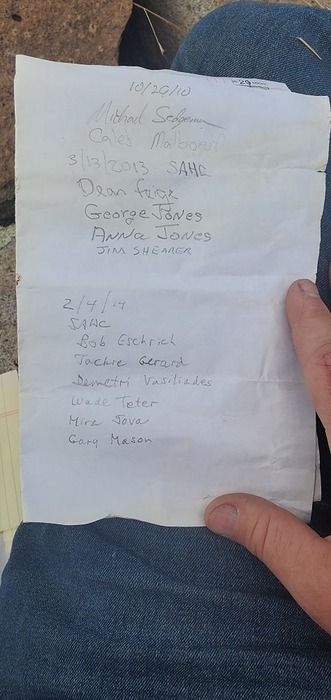 10/29/10
Michael
Caleb
3/13/2013 SAHC
Dean
George Jones
Anna Jones
JIM SHEARER
2/4/14
SAHC
Bob Eschrich
Gerard
Demetri Vasiliades
Wade Teter
Mire Jova
Gary Mason